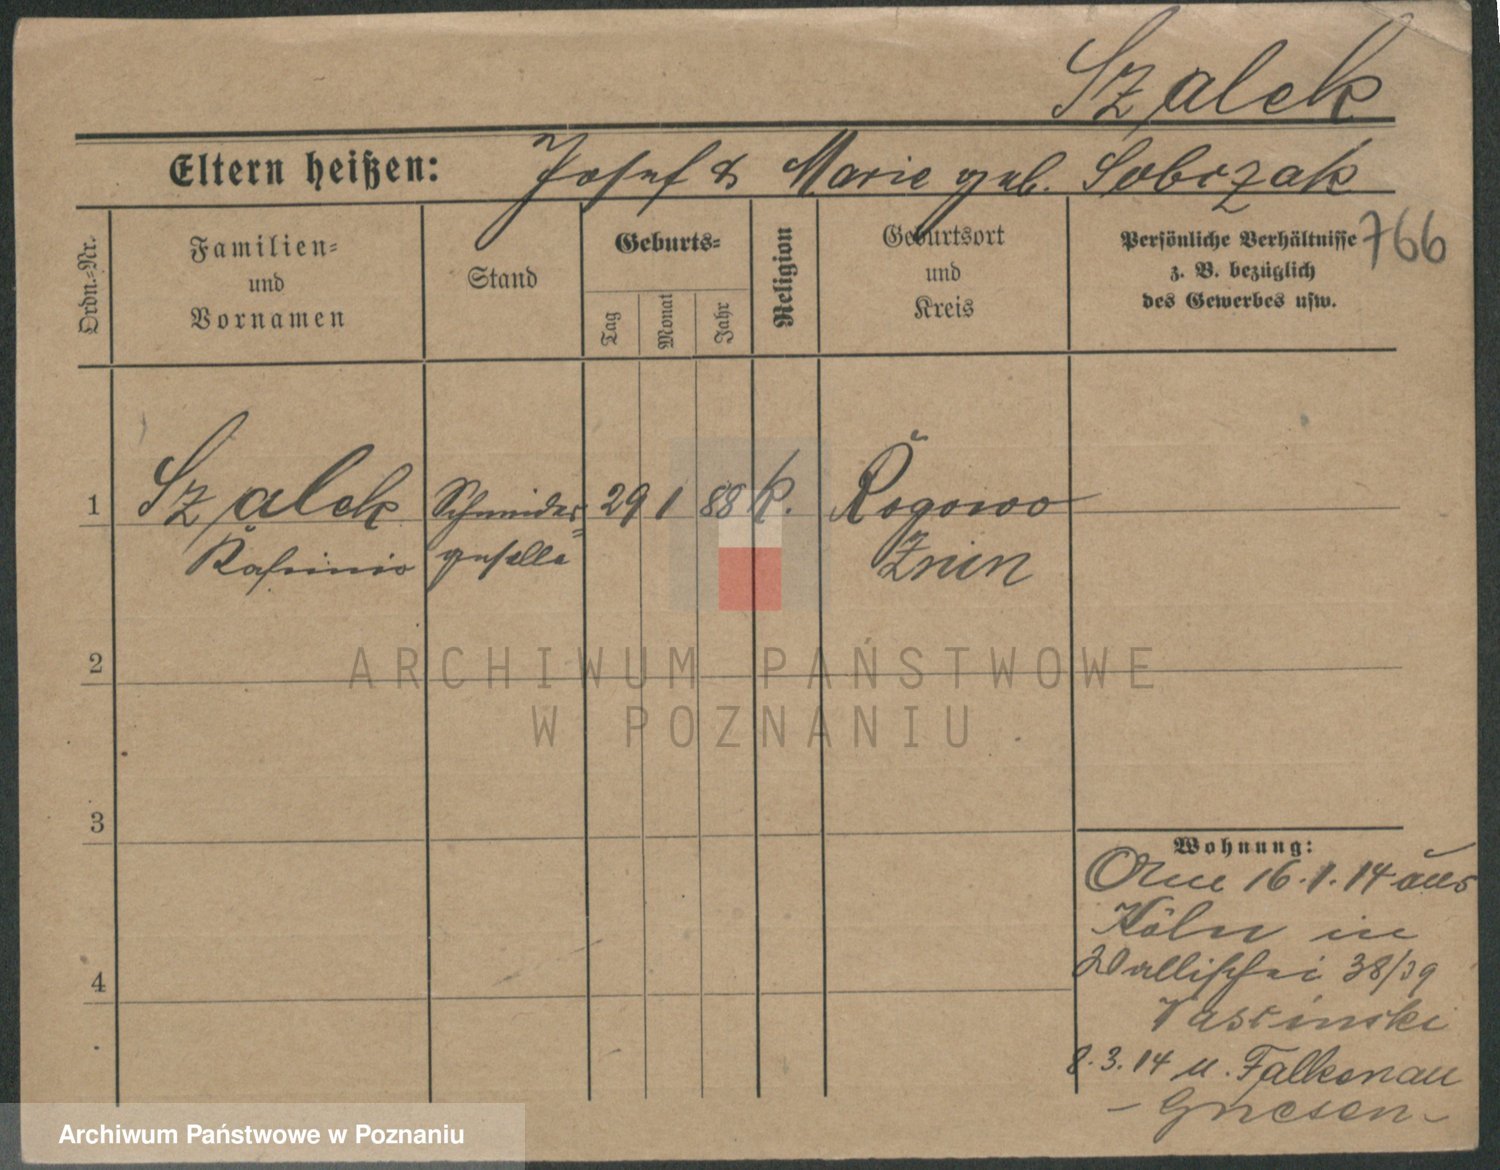 Szalek
Eltern heißen: Josef & Marie geb. Sobczak
766
Ordn.-Nr.
Familien-
und
Vornamen
Stand
Geburts-
Tag
Monat
Jahr
Religion
Geburtsort
und
Kreis
Persönliche Verhältnisse
z. B. bezüglich
des Gewerbes usw.
1 Szalek Schneider= 29 1 88 k. Rogowo
Kasimir geselle Znin
2
ARCHIWUM PAŃSTWOWE
W POZNANIU
3
Wohnung:
16.1.14 aus
Köln in
Wallischei 38/39
8.3.14 n. Falkenau
- Gnesen -
4
Archiwum Państwowe w Poznaniu